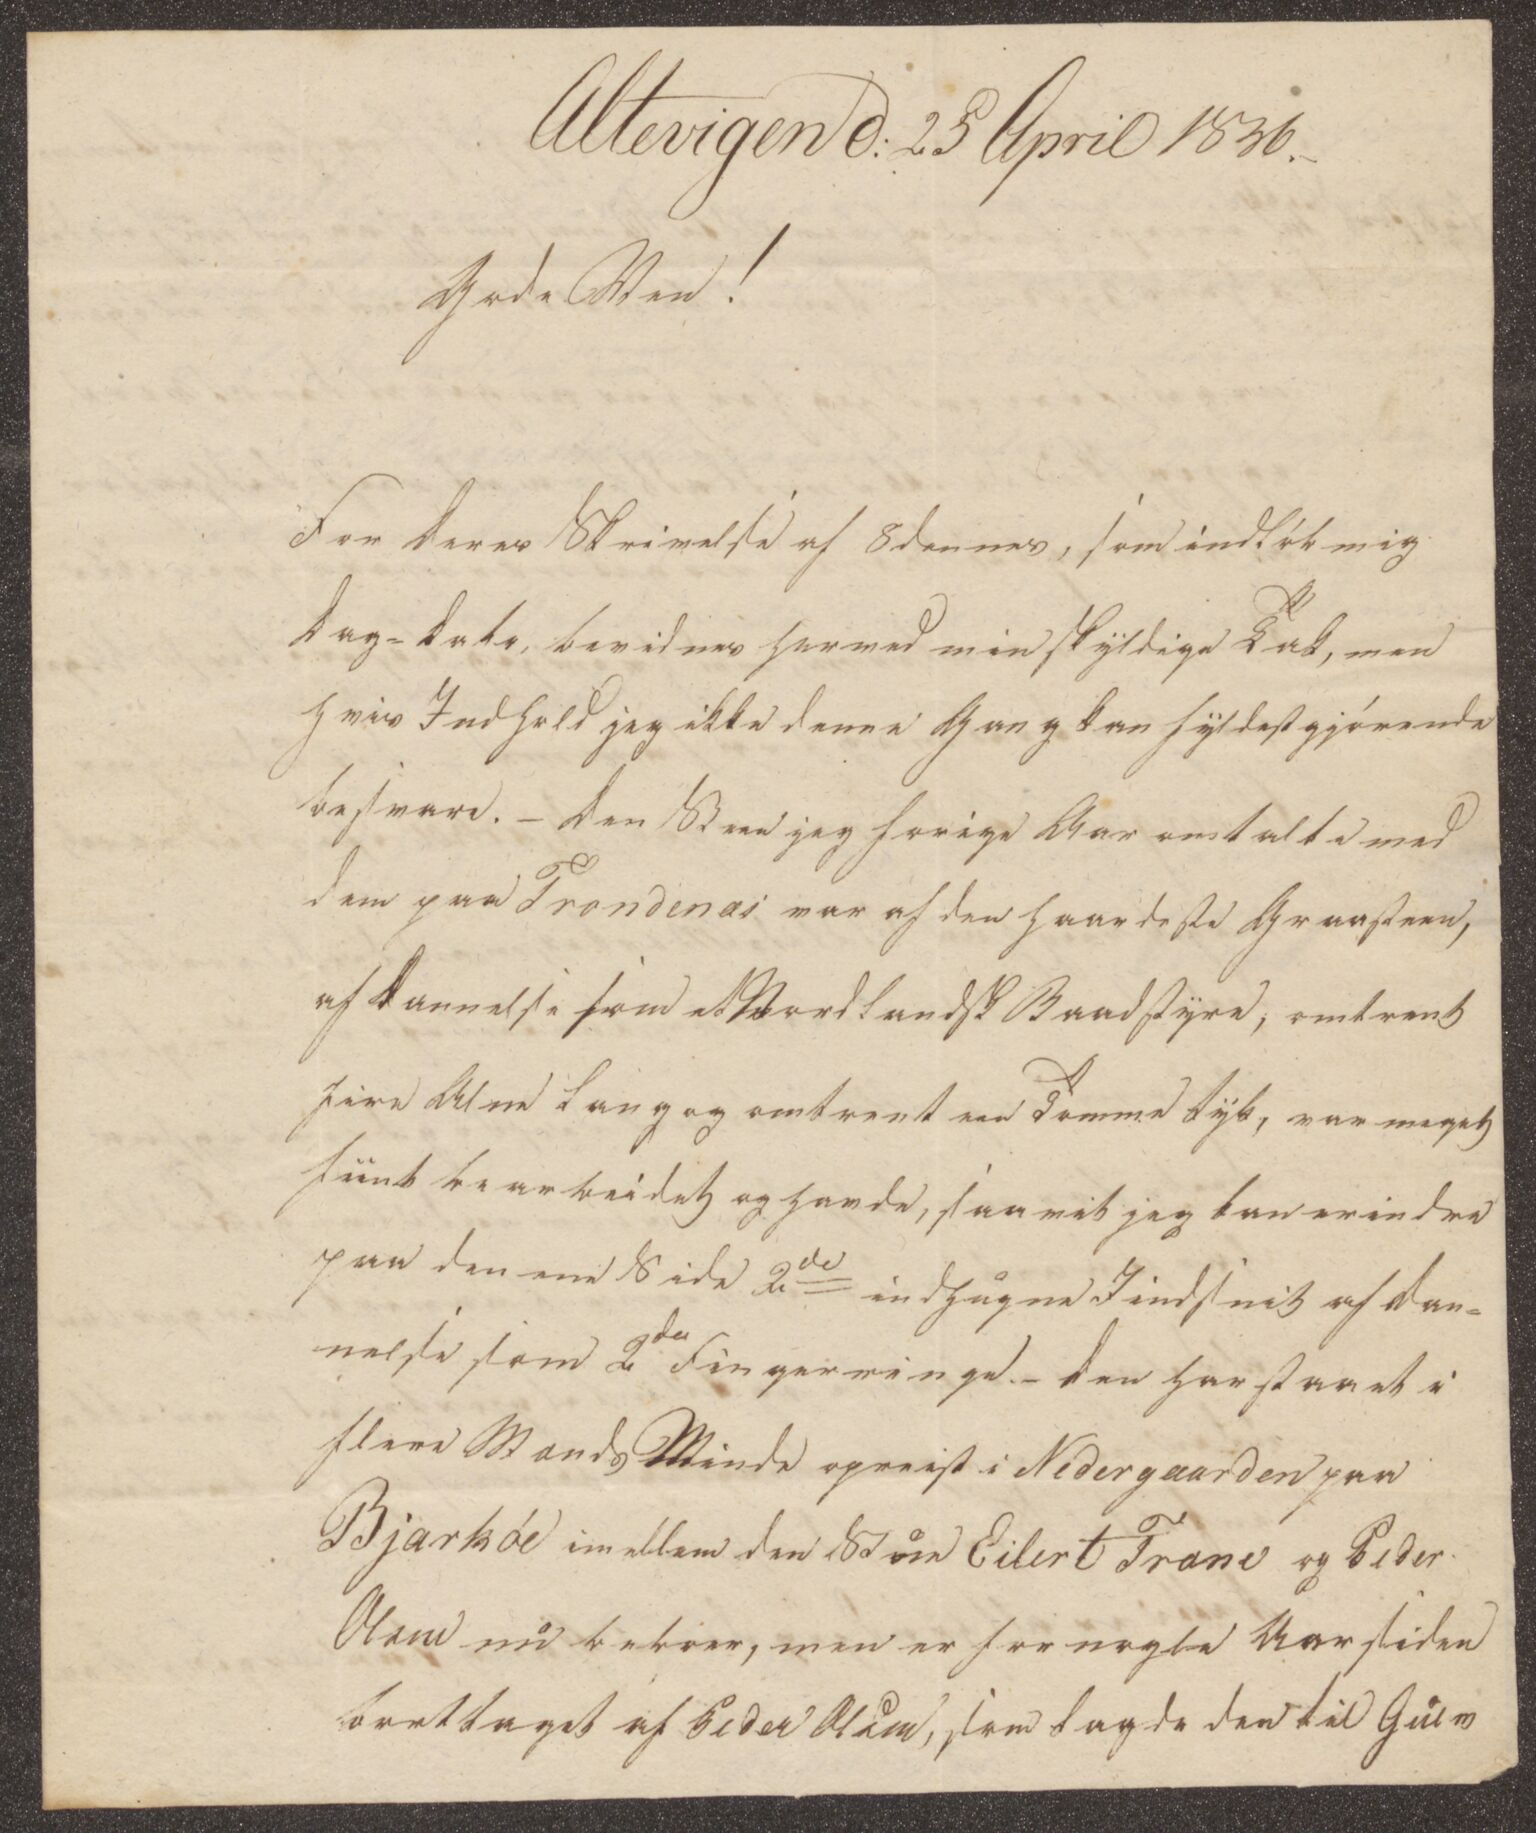 Altevigen d: 25 April 1836.-
Gode Ven!
For Deres Skrivelse af 8 dennes, som indløb mig
Dag-Dato, bevidnes herved min skyldige Tak, men
hvis Indhold jeg ikke denne Gang kan fyldestgjørende
besvare. - Den Steen jeg forrige Aar omtalte med
dem paa Trondenæs var af den haardeste Graasteen,
af Dannelse som et Nordlandsk Baadstyre, omtrent
fire Alne lang og omtrent een Tomme tyk, var meget
fiint bearbeidet og havde, saavit jeg kan erindre
paa den ene Side 2de indhugne Jindsnit af Dan-
nelse som 2de Fingerringe. - Den har staaet i
flere Mands Minde opreist i Nedergaarden paa
Bjarköe imellem den Eilert Trane og Peder
Olsen nu beboer, men er for nogle Aar siden
borttaget af Peder Olsen, som lagde den til Gulv